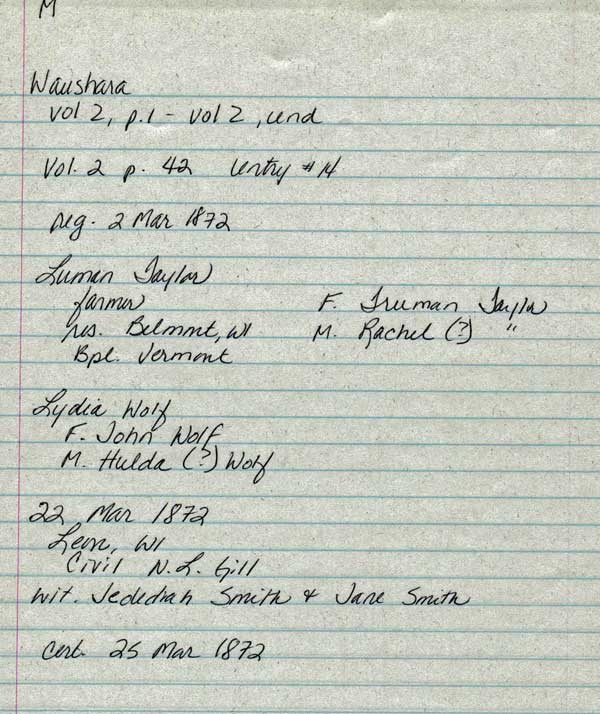 M
Waushara
vol 2, p.1 - vol 2, end
Vol. 2 p. 42 entry #14
reg. 2 Mar 1872
Luman Taylor
farmer F. Truman Taylor
res. Belmont, WI M. Rachel (?) "
Bpl. Vermont
Lydia Wolf
F. John Wolf
M. Hulda (?) Wolf
22 Mar 1872
Leon, WI
Civil N.L. Gill
wit. Jedediah Smith & Jane Smith
cert. 25 Mar 1872